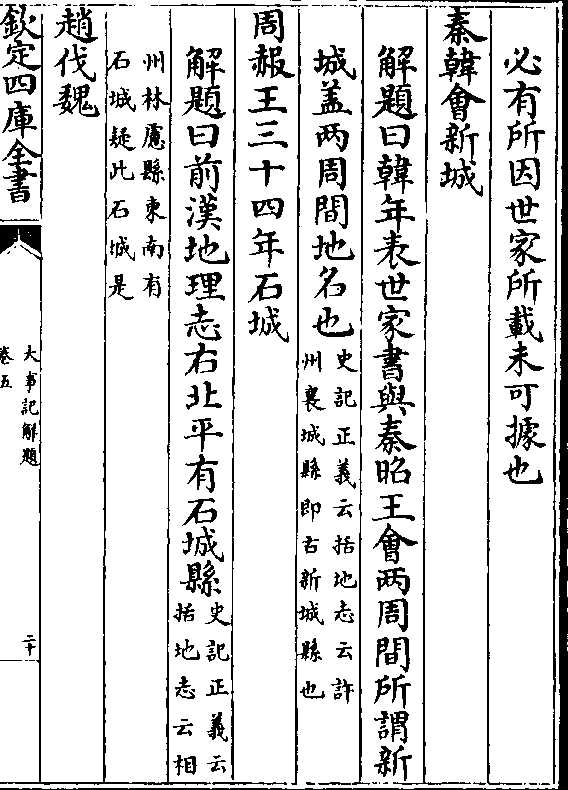 必有所因世家所載未可據也
秦韓會新城
解題曰韓年表世家書與秦昭王會两周間所謂新
城盖两周間地名也史記正義云括地志云許
州襄城縣即古新城縣也
周赧王三十四年石城
解題曰前漢地理志右北平有石城縣史記正義云
括地志云相
州林慮縣東南有
石城疑此石城是
趙伐魏
欽定四庫全書
大事記解題
卷五
二十